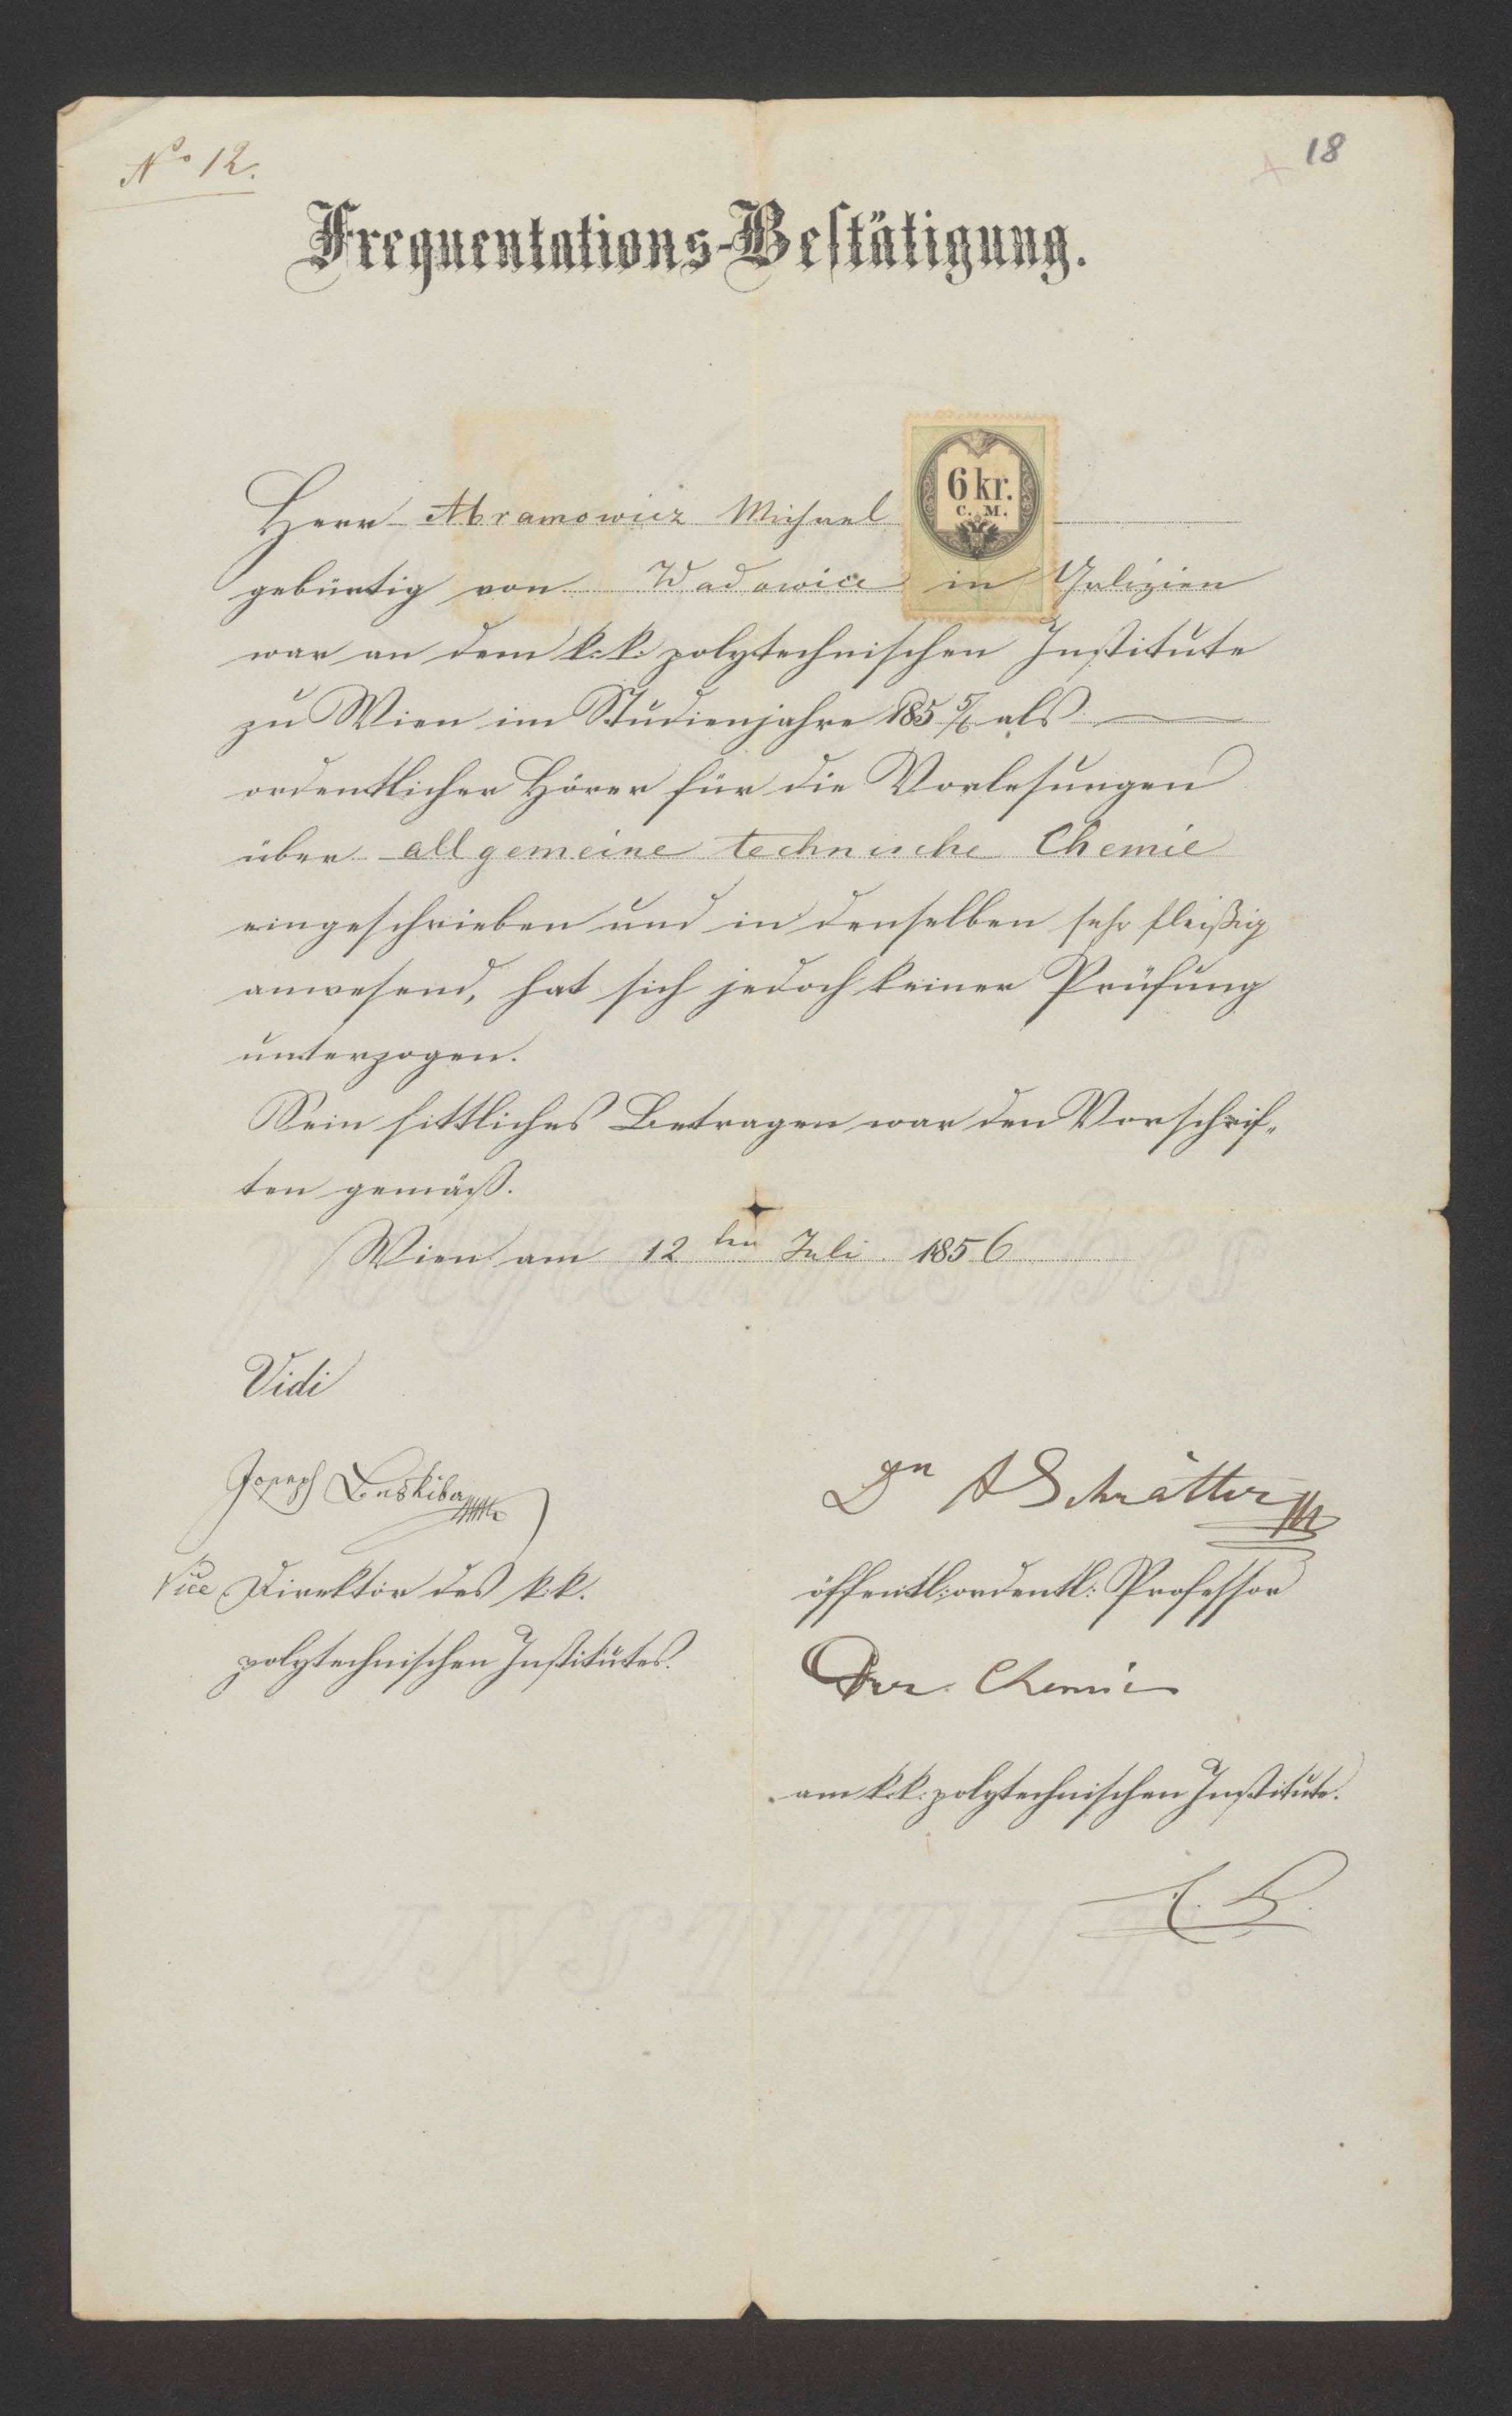 No 12.
18
Frequentations-Bestätigung.
6 kr.
C. M.
Herr Abramowicz Michael
gebürtig von Wadowice in Galizien
war an dem k: k: polytechnischen Institute
zu Wien im Studienjahre 185 5/6 als
ordentlicher Hörer für die Vorlesungen
über allgemeine technische Chemie
eingeschrieben und in denselben sehr fleißig
anwesend, hat sich jedoch keiner Prüfung
unterzogen.
Sein sittliches Betragen war den Vorschrif-
ten gemäß.
Wien am 12 ten Juli 1856
Vidi
Joseph
Dr A Schrötter
Vice Direktor des k: k.
öffentl: ordentl: Professor
polytechnischen Institutes.
der Chemie
am k: k: polytechnischen Institute.
polytechnisches
INSTITUT.